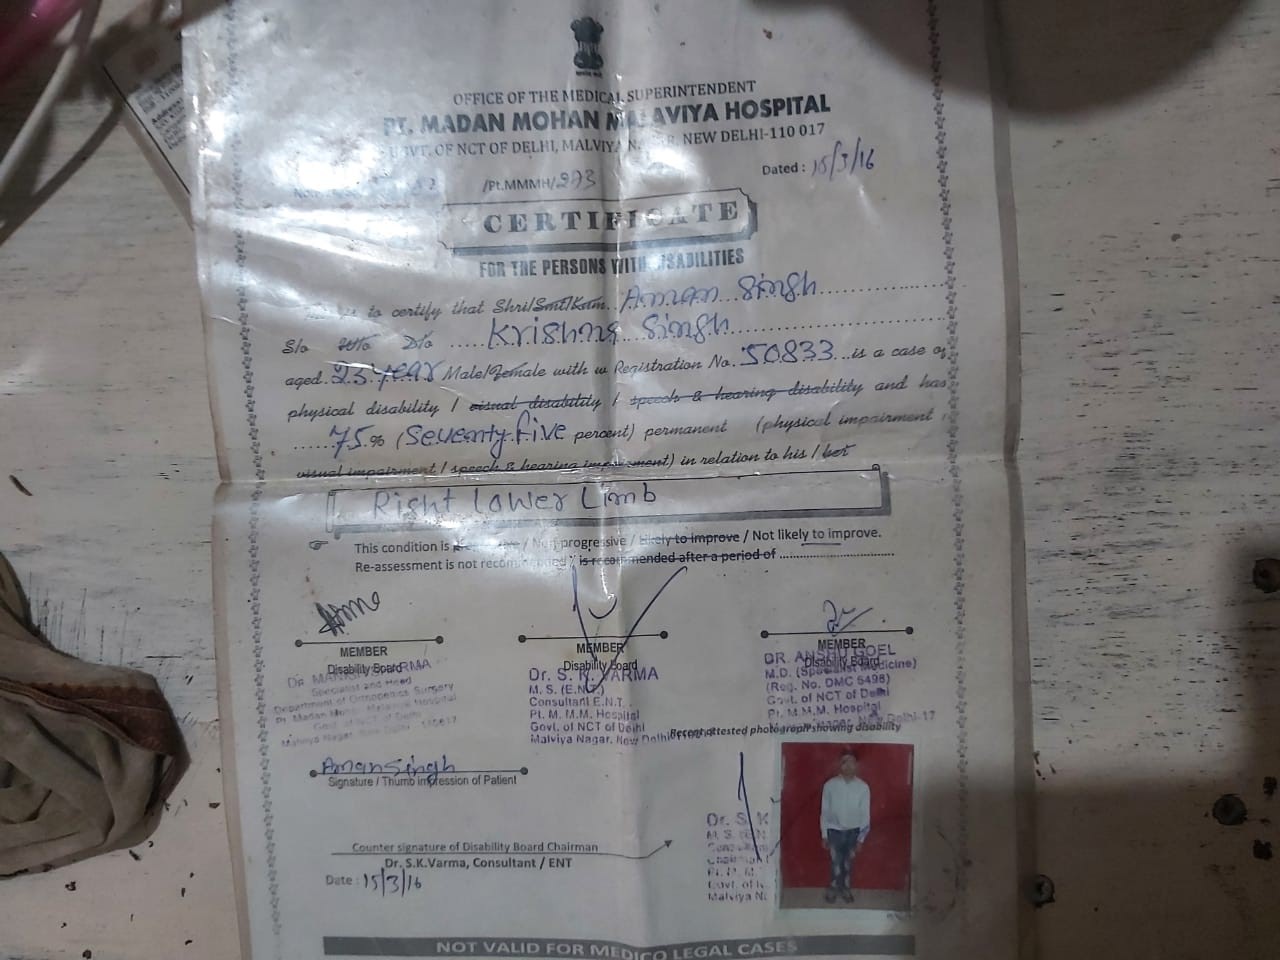 OFFICE OF THE MEDICAL SUPERINTENDENT
PT. MADAN MOHAN MALAVIYA HOSPITAL
GOVT. OF NCT OF DELHI, MALVIYA NAGAR, NEW DELHI-110 017
/Pt.MMMH/293 Dated : 15/3/16
CERTIFICATE
FOR THE PERSONS WITH DISABILITIES
This is to certify that Shri/Smt/Kum. Aman Singh
S/o W/o D/o ..... Krishna Singh
aged 23 year Male/Female with w Registration No. 50833 is a case of
physical disability / visual disability / speech & hearing disability and has
75 % (Seventy five percent) permanent (physical impairment /
visual impairment / speech & hearing impairment) in relation to his / her
Right Lower Limb
This condition is Progressive / Non progressive / Likely to improve / Not likely to improve.
Re-assessment is not recommended / is recommended after a period of
MEMBER MEMBER MEMBER
Disability Board Disability Board Disability Board
Specialist and Head
Department of Orthopedics Surgery
Pt. Madan Mohan Malaviya Hospital
Govt. of NCT of Delhi
Malviya Nagar, New Delhi
Dr. S. K. VARMA
M. S. (E.N.T.)
Consultant E.N.T.
Pt. M. M. M. Hospital
Govt. of NCT of Delhi
Malviya Nagar, New Delhi
DR. ANSHU GOEL
M.D. (Specialist Medicine)
(Reg. No. DMC 5498)
Govt. of NCT of Delhi
Pt. M.M.M. Hospital
Nagar, New Delhi-17
Recent attested photograph showing disability
Aman Singh
Signature / Thumb impression of Patient
Dr. S. K
M. S. (E.N.
Pt. M.
Govt. of
Malviya N
Counter signature of Disability Board Chairman
Dr. S.K.Varma, Consultant / ENT
Date : 15/3/16
NOT VALID FOR MEDICO LEGAL CASES